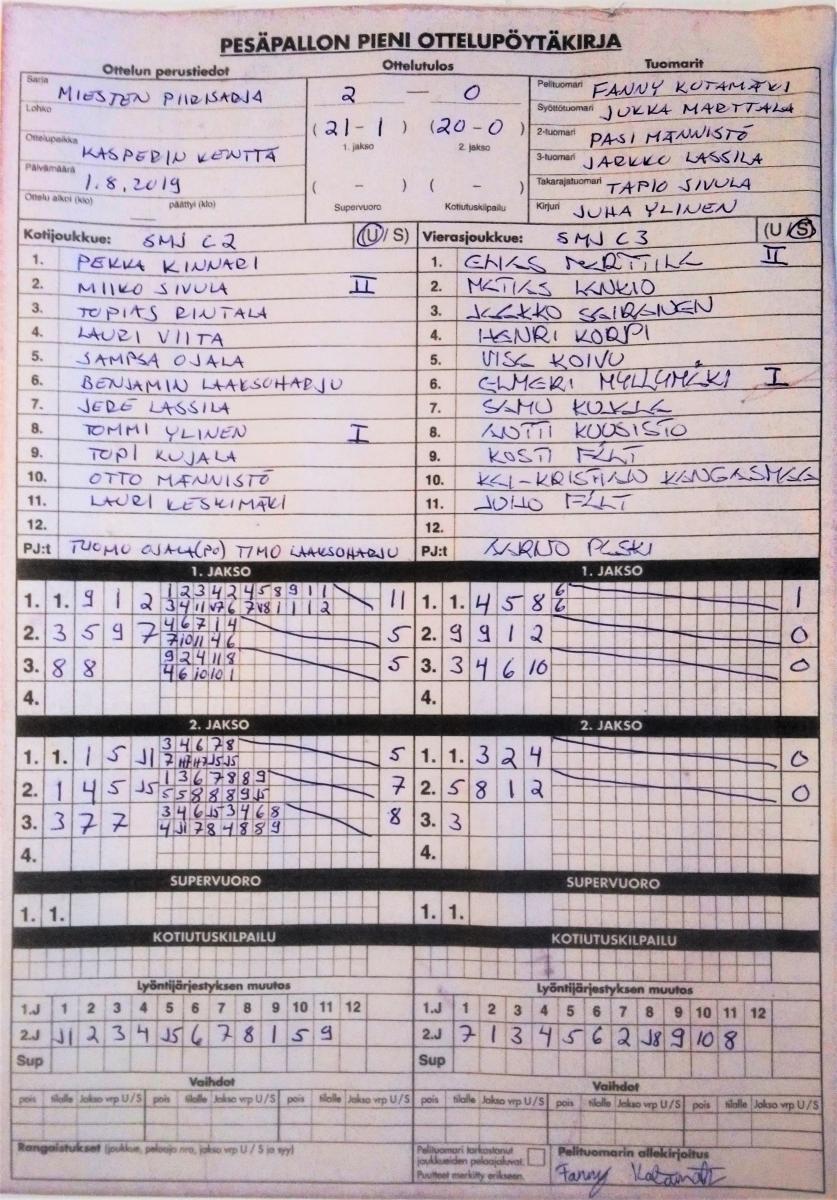 PESÄPALLON PIENI OTTELUPÖYTÄKIRJA
Ottelun perustiedot
Ottelutulos
Tuomarit
Sarja MIESTEN PIIRISARJA
2 — 0
Pelituomari FANNY KOTAMÄKI
Lohko
Syöttötuomari JUKKA MARTTALA
(21-1) (20-0)
1. jakso 2. jakso
2-tuomari PASI MÄNNISTÖ
Ottelupaikka KASPERIN KENTTÄ
3-tuomari JARKKO LASSILA
Päivämäärä 1.8.2019
( - ) ( - )
Takarajatuomari TAPIO SIVULA
Ottelu alkoi (klo) päättyi (klo)
Supervuoro Kotiutuskilpailu
Kirjuri JUHA YLINEN
Kotijoukkue: SMJ C2 (U/S)
Vierasjoukkue: SMJ C3 (U/S)
1. PEKKA KINNARI
2. MIIKO SIVULA II
3. TOPIAS RINTALA
4. LAURI VIITA
5. SAMPSA OJALA
6. BENJAMIN LAAKSOHARJU
7. JERE LASSILA
8. TOMMI YLINEN I
9. TOPI KUJALA
10. OTTO MÄNNISTÖ
11. LAURI KESKIMÄKI
12.
PJ:t TUOMO OJALA(PO) TIMO LAAKSOHARJU
1. ELIAS MARTTILA II
2. MATIAS LANKIO
3. JAAKKO SAIRANEN
4. HENRI KORPI
5. VISA KOIVU
6. ELMERI MYLLYMÄKI I
7. SAMU
8. ANTTI KUUSISTO
9. KOSTI FÄLT
10. KAI-KRISTIAN KANGASMAA
11. JUHO FÄLT
12.
PJ:t AARNO
1. JAKSO
1. 1. 9 1 2
11
2. 3 5 9 7
5
3. 8 8
5
4.
1. JAKSO
1. 1. 4 5 8 6
6
1
2. 9 9 1 2 0
3. 3 4 6 10 0
4.
2. JAKSO
1. 1. 1 5 J1
3 4 6 7 8
5
2. 1 4 5 J5
1 3 6 7 8 8 9
5 5 8 8 8 9 J5
7
3. 3 7 7
3 4 6 J5 3 4 6 8
4 J1 7 8 4 8 8 9
8
4.
2. JAKSO
1. 1. 3 2 4 0
2. 5 8 1 2 0
3. 3
4.
SUPERVUORO
1. 1.
SUPERVUORO
1. 1.
KOTIUTUSKILPAILU
KOTIUTUSKILPAILU
Lyöntijärjestyksen muutos
1.J 1 2 3 4 5 6 7 8 9 10 11 12
2.J J1 2 3 4 J5 6 7 8 1 5 9
Sup
Lyöntijärjestyksen muutos
1.J 1 2 3 4 5 6 7 8 9 10 11 12
2.J 7 1 3 4 5 6 2 J8 9 10 8
Sup
Vaihdot
pois tilalle Jakso vrp U/S pois tilalle Jakso vrp U/S pois tilalle Jakso vrp U/S
Vaihdot
pois tilalle Jakso vrp U/S pois tilalle Jakso vrp U/S pois tilalle Jakso vrp U/S
Rangaistukset (joukkue, pelaaja nro, jakso vrp U / S ja syy)
Pelituomari tarkastanut
joukkueiden pelaajaluvat.
Puutteet merkitty erikseen.
Pelituomarin allekirjoitus
Fanny Kotamäki